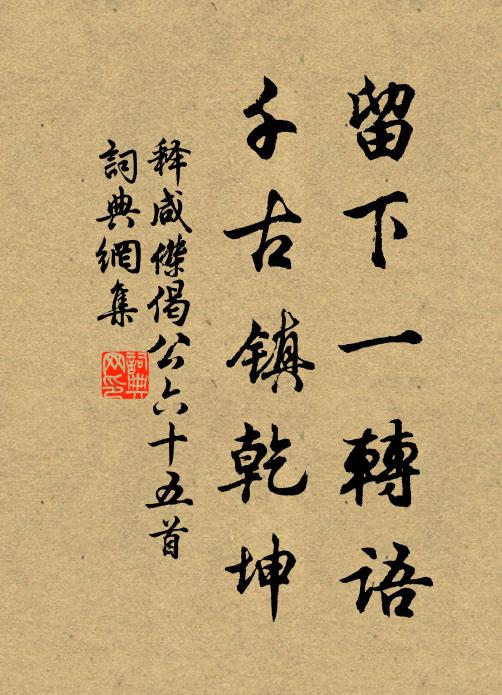 留下一轉語
千古镇乾坤
释咸傑偈公六十五首
詞典網集
詞典网印